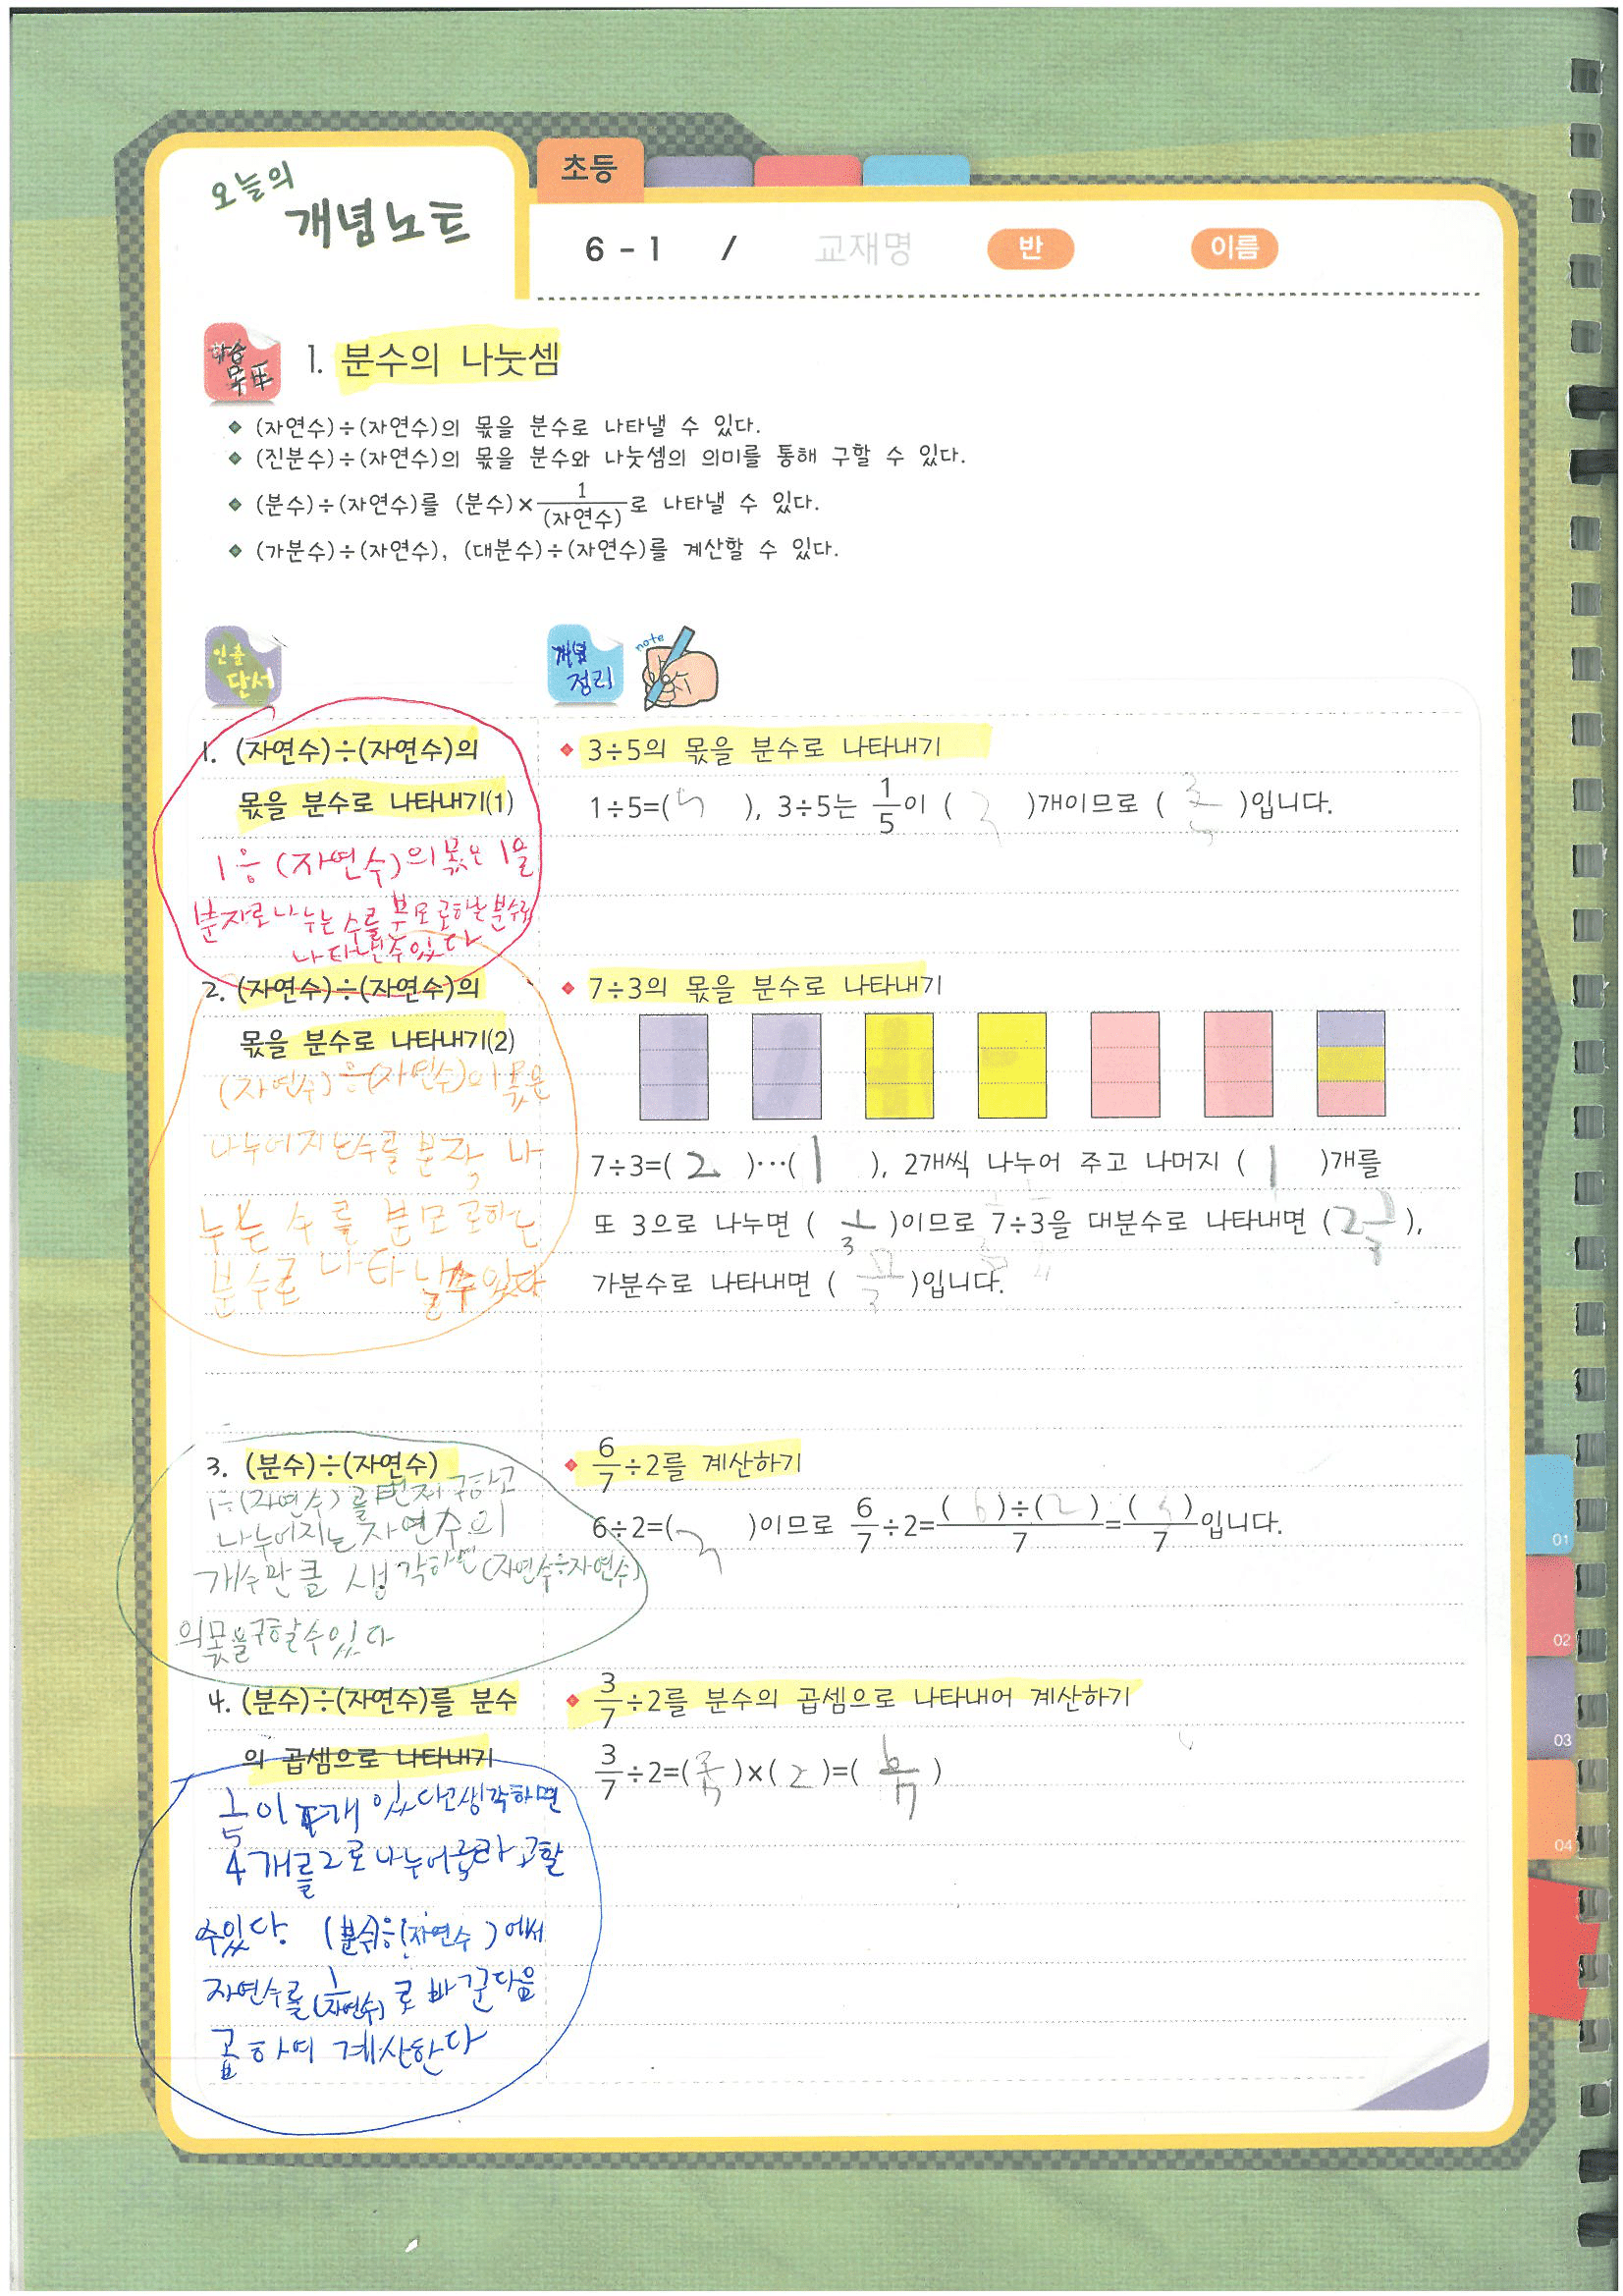 오늘의
개념노트
초등
6-1 / 교재명 반 이름
학습
목표
1. 분수의 나눗셈
◆ (자연수)÷(자연수)의 몫을 분수로 나타낼 수 있다.
◆ (진분수)÷(자연수)의 몫을 분수와 나눗셈의 의미를 통해 구할 수 있다.
◆ (분수)÷(자연수)를 (분수)×1/(자연수)로 나타낼 수 있다.
◆ (가분수)÷(자연수), (대분수)÷(자연수)를 계산할 수 있다.
인출
단서
개념
정리
note
1. (자연수)÷(자연수)의
몫을 분수로 나타내기(1)
1÷(자연수)의 몫은 1을
분자로 나누는 수를 분모로하는 분수로
나타낼수있다
◆ 3÷5의 몫을 분수로 나타내기
1÷5=(5 ), 3÷5는 1/5이 ( 3 )개이므로 ( 3/5 )입니다.
2. (자연수)÷(자연수)의
몫을 분수로 나타내기(2)
(자연수)÷(자연수)의 몫은
나누어지는수를 분자, 나
누는 수를 분모로하는
분수로 나타낼수있다
◆ 7÷3의 몫을 분수로 나타내기
7÷3=( 2 )…( 1 ), 2개씩 나누어 주고 나머지 ( 1 )개를
또 3으로 나누면 ( 1/3 )이므로 7÷3을 대분수로 나타내면 (2 1/3),
가분수로 나타내면 ( 7/3 )입니다.
3. (분수)÷(자연수)
1÷(자연수)를 먼저 구하고
나누어지는 자연수의
개수만큼 생각하면 (자연수÷자연수)
의몫을구할수있다
◆ 6/7÷2를 계산하기
6÷2=(3 )이므로 6/7÷2=( 6 )÷(2)/7=( 3 )/7입니다.
4. (분수)÷(자연수)를 분수
의 곱셈으로 나타내기
1/5이 4개 있다고생각하면
4개를2로나누어 라고할
수있다. (분수)÷(자연수)에서
자연수를 1/(자연수)로 바꾼다음
곱하여 계산한다
◆ 3/7÷2를 분수의 곱셈으로 나타내어 계산하기
3/7÷2=(3/7)×(2)=( 6/7 )
01
02
03
04